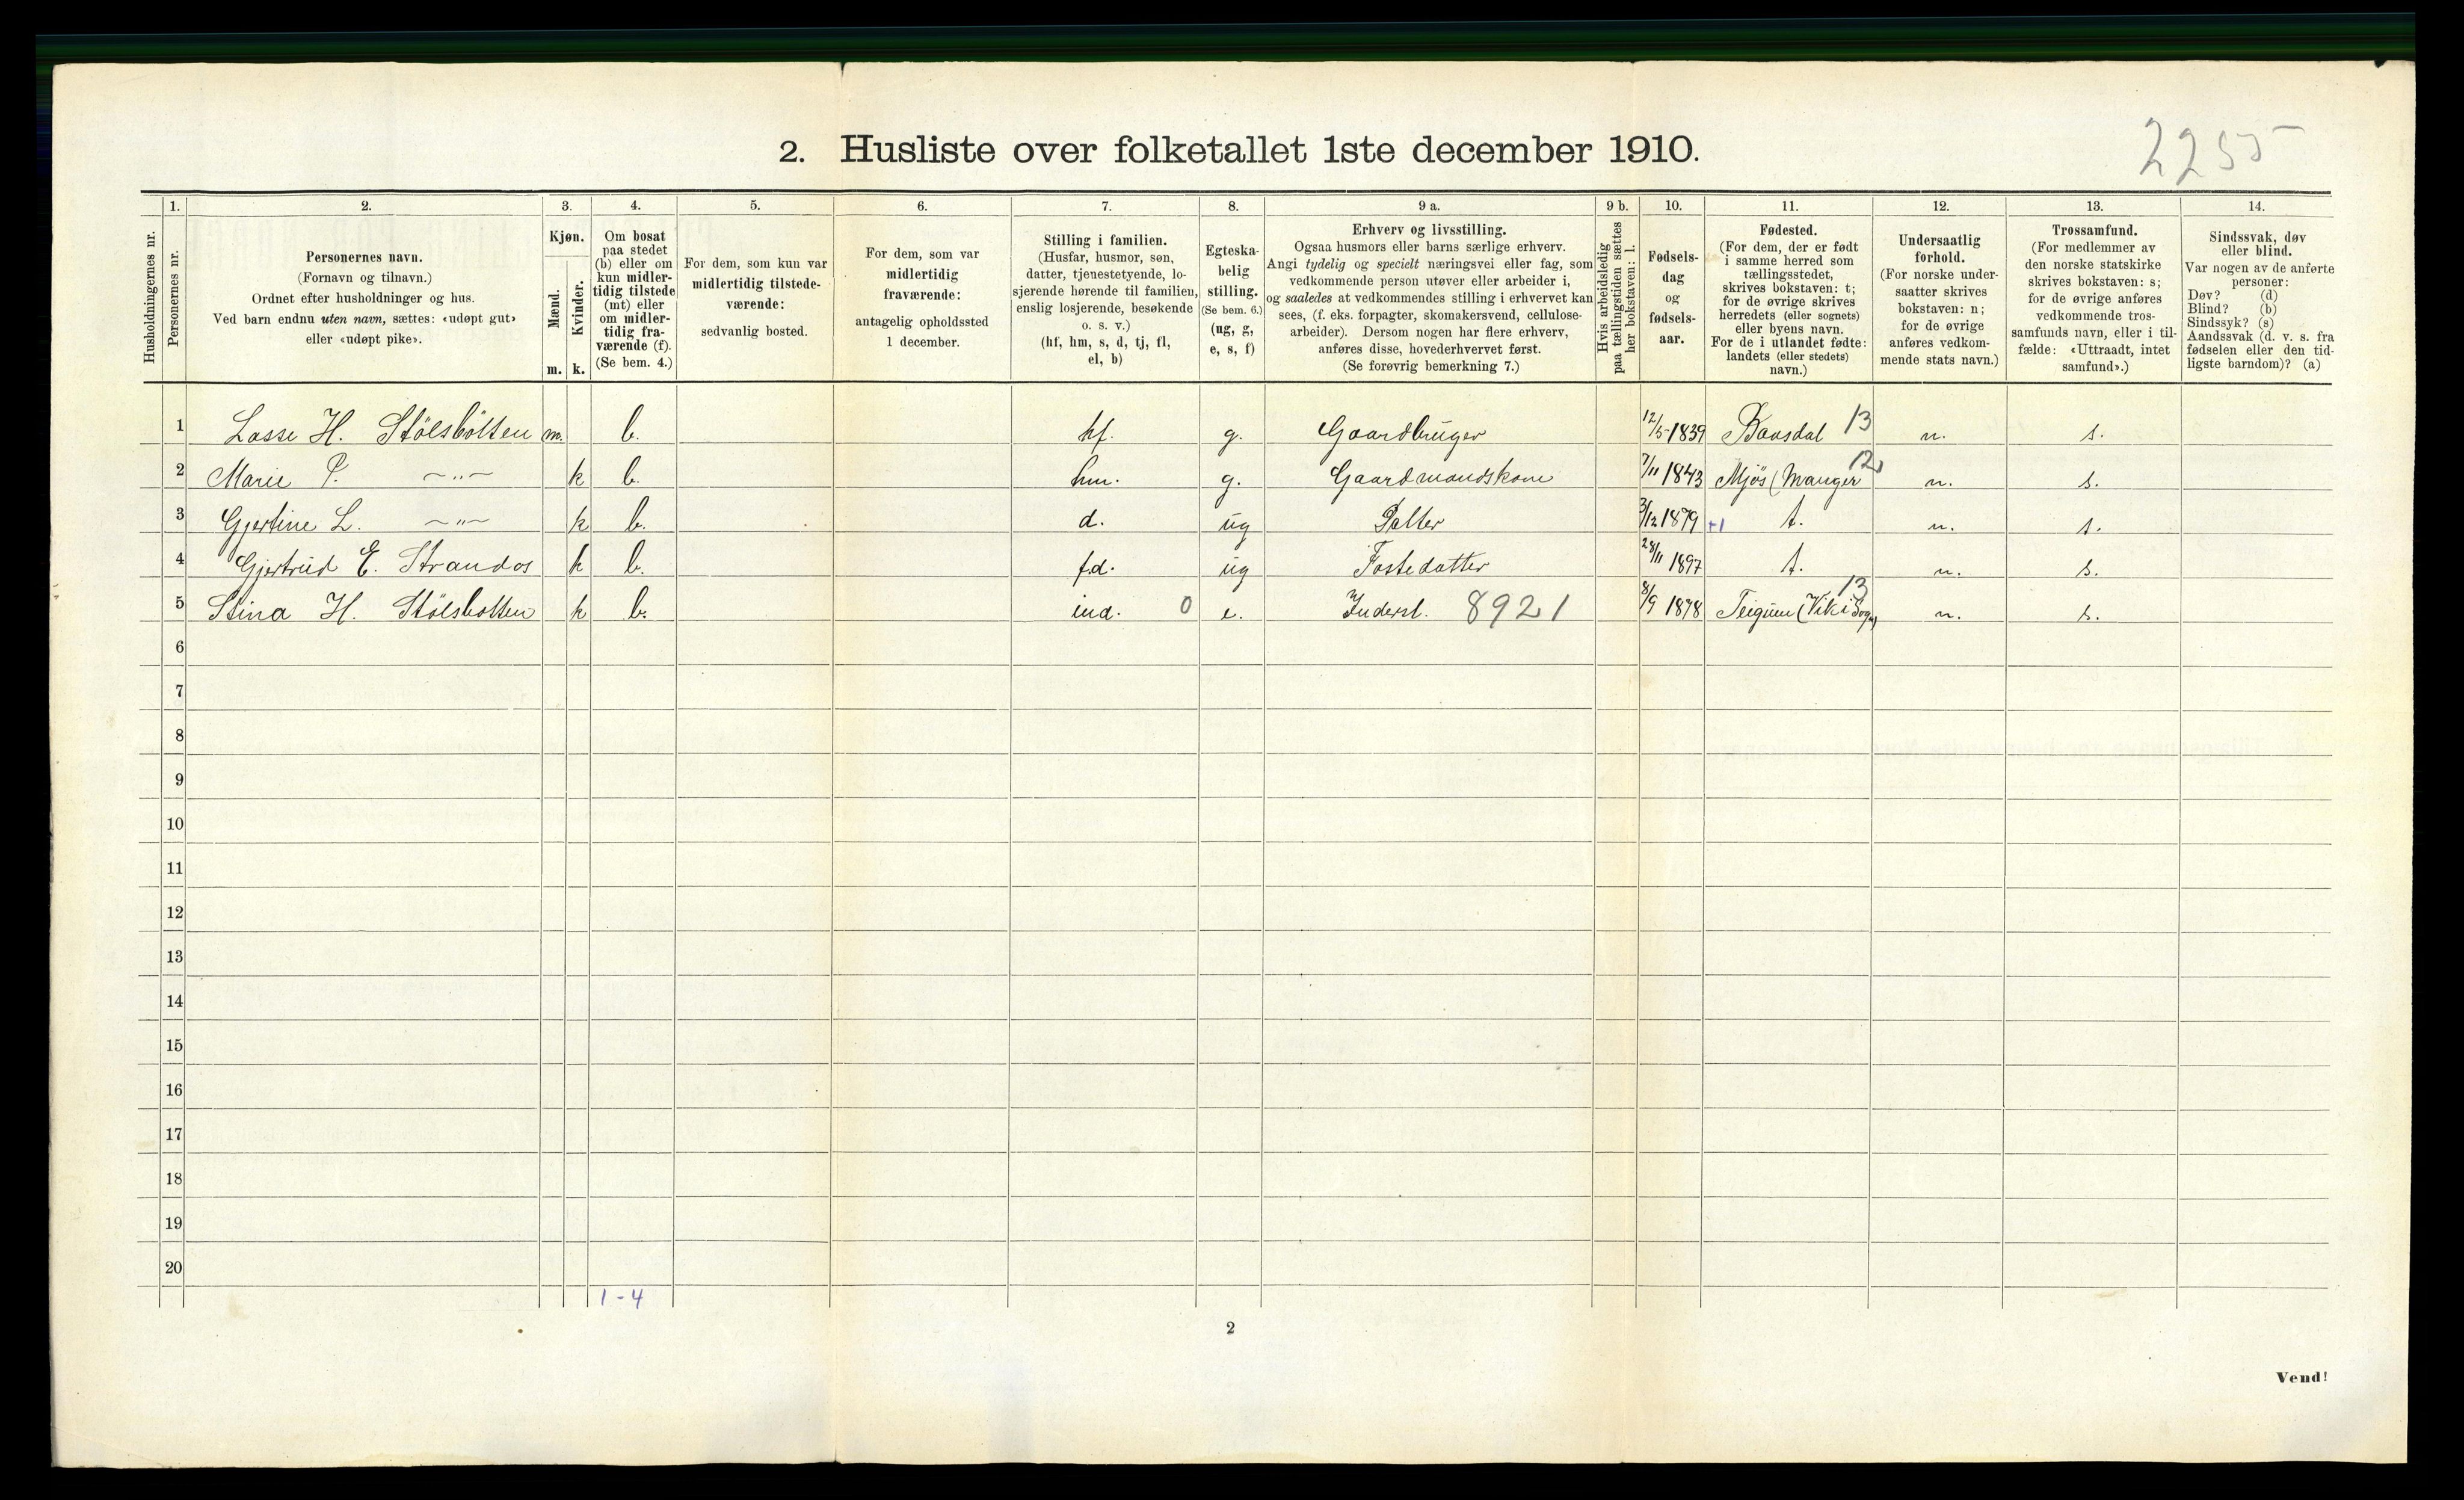 2255
2. Husliste over folketallet 1ste december 1910.
Husholdningernes nr.
1. Personernes nr.
2. Personernes navn. (Fornavn og tilnavn.) Ordnet efter husholdninger og hus. Ved barn endnu uten navn, sættes: «udøpt gut» eller «udøpt pike».
3. Kjøn. Mænd. m. Kvinder. k.
4. Om bosat paa stedet (b) eller om kun midlertidig tilstede (mt) eller om midlertidig fraværende (f). (Se bem. 4.)
5. For dem, som kun var midlertidig tilstedeværende: sedvanlig bosted.
6. For dem, som var midlertidig fraværende: antagelig opholdssted 1 december.
7. Stilling i familien. (Husfar, husmor, søn, datter, tjenestetyende, losjerende hørende til familien, enslig losjerende, besøkende o. s. v.) (hf, hm, s, d, tj, fl, el, b)
8. Egteskabelig stilling. (Se bem. 6.) (ug, g, e, s, f)
9 a. Erhverv og livsstilling. Ogsaa husmors eller barns særlige erhverv. Angi tydelig og specielt næringsvei eller fag, som vedkommende person utøver eller arbeider i, og saaledes at vedkommendes stilling i erhvervet kan sees, (f. eks. forpagter, skomakersvend, cellulosearbeider). Dersom nogen har flere erhverv, anføres disse, hovederhvervet først. (Se forøvrig bemerkning 7.)
9 b. Hvis arbeidsledig paa tællingstiden sættes her bokstaven: l.
10. Fødselsdag og fødselsaar.
11. Fødested. (For dem, der er født i samme herred som tællingsstedet, skrives bokstaven: t; for de øvrige skrives herredets (eller sognets) eller byens navn. For de i utlandet fødte: landets (eller stedets) navn.)
12. Undersaatlig forhold. (For norske undersaatter skrives bokstaven: n; for de øvrige anføres vedkommende stats navn.)
13. Trossamfund. (For medlemmer av den norske statskirke skrives bokstaven: s; for de øvrige anføres vedkommende trossamfunds navn, eller i tilfælde: «Uttraadt, intet samfund».)
14. Sindssvak, døv eller blind. Var nogen av de anførte personer: Døv? (d) Blind? (b) Sindssyk? (s) Aandssvak (d. v. s. fra fødselen eller den tidligste barndom)? (a)
1 Lasse H. Stölsbötten m. b. hf. g. Gaardbruger 12/5-1839 Baasdal 13 n. s.
2 Marie P. —„— k b. hm. g. Gaardmandskone 7/11 1843 Mjös (Manger 12 n. s.
3 Gjertine L. —„— k b. d. ug Datter 3/12 1879 +1 t. n. s.
4 Gjertrud E. Strandos k b. fd. ug Fostedatter 28/11 1897 t. n. s.
5 Stina H. Stölsbotten k b. ind. 0 e. Inderst. 8921 8/9 1878 Teigum (Vik i Sogn) 13 n. s.
6
7
8
9
10
11
12
13
14
15
16
17
18
19
20
1-4
2
Vend!